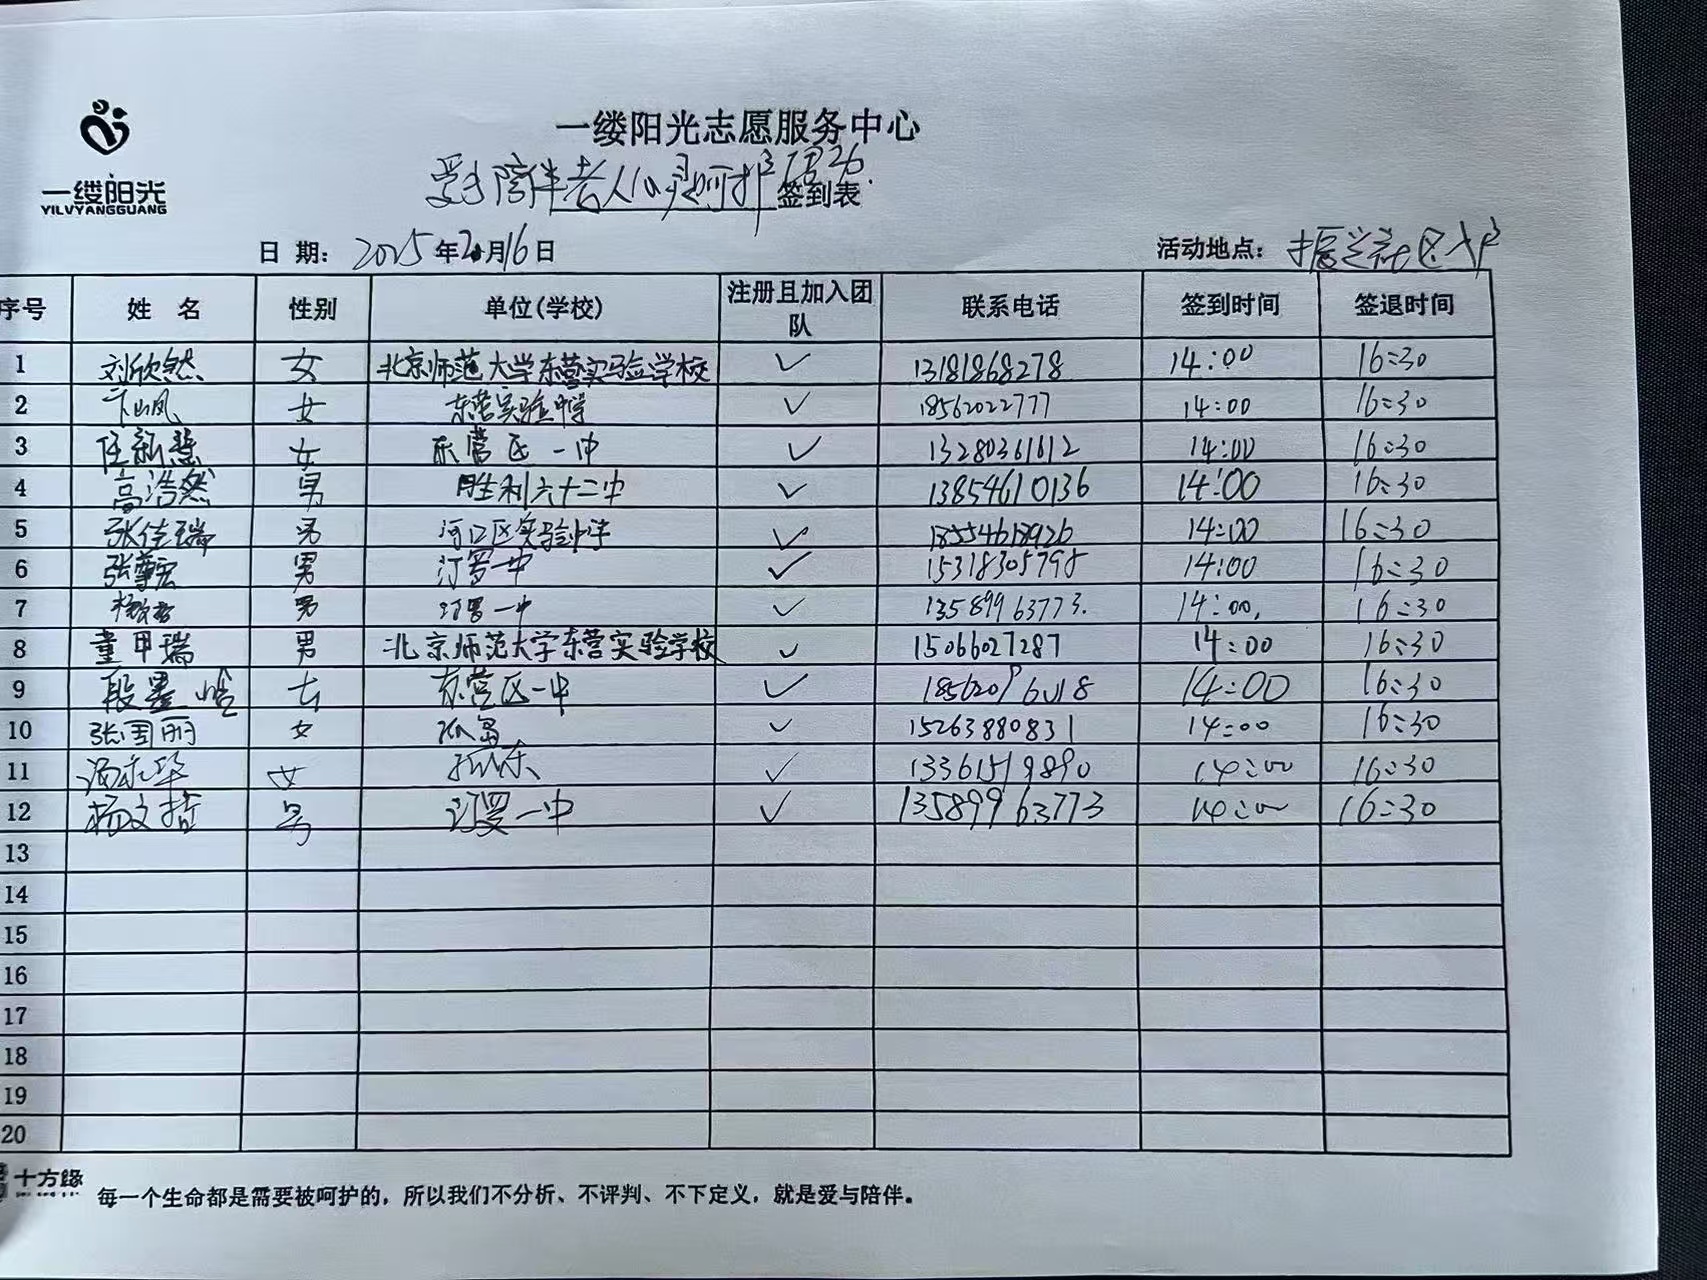 一缕阳光
YILVYANGGUANG
一缕阳光志愿服务中心
陪伴老人 签到表
日 期： 2025年2月16日 活动地点：
序号 姓 名 性别 单位(学校) 注册且加入团队 联系电话 签到时间 签退时间
1 刘欣然 女 北京师范大学东营实验学校 ✓ 13181868278 14:00 16:30
2 女 东营实验中学 ✓ 18562022777 14:00 16:30
3 任新慧 女 东营区一中 ✓ 13280361612 14:00 16:30
4 高浩然 男 胜利六十二中 ✓ 13854610136 14:00 16:30
5 张佳瑞 男 河口区实验 ✓ 14:00 16:30
6 张 男 汀罗一中 ✓ 15318305798 14:00 16:30
7 男 汀罗一中 ✓ 13589963773. 14:00. 16:30
8 董甲瑞 男 北京师范大学东营实验学校 ✓ 15066027287 14:00 16:30
9 段墨 女 东营区一中 ✓ 14:00 16:30
10 张国丽 女 孤岛 ✓ 15263880831 14:00 16:30
11 女 孤东 ✓ 13361519890 14:00 16:30
12 杨文哲 男 汀罗一中 ✓ 13589963773 14:00 16:30
13
14
15
16
17
18
19
20
十方缘
每一个生命都是需要被呵护的，所以我们不分析、不评判、不下定义，就是爱与陪伴。